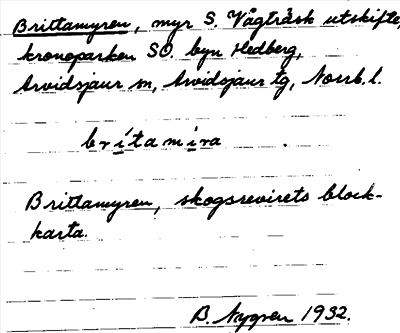 Brittamyren, myr S. Vågträsk utskifte,
kronoparken SO. byn Hedberg,
Arvidsjaur sn, Arvidsjaur tg, Norrb. l.
brítamíra
Brittamyren, skogsrevirets block-
karta.
B. Nygren 1932.